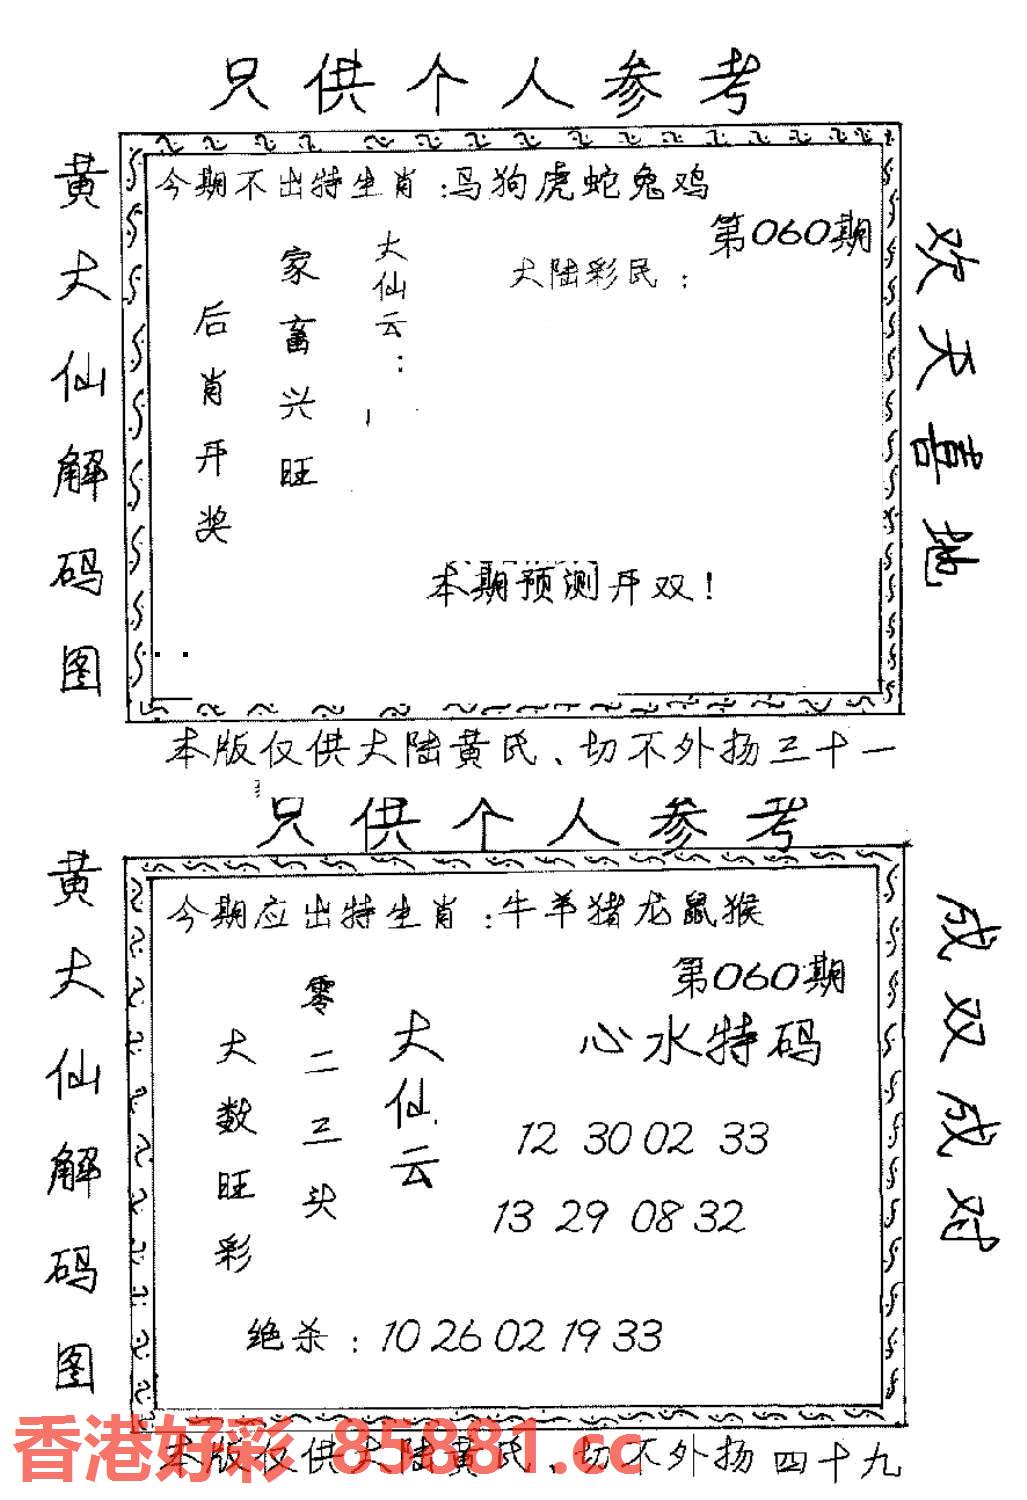 只供个人参考
黄大仙解码图
今期不出特生肖:马狗虎蛇兔鸡
第060期
大陆彩民:
大仙云:
家畜兴旺
后肖开奖
本期预测开双!
欢天喜地
本版仅供大陆黄氏、切不外扬三十一
只供个人参考
黄大仙解码图
今期应出特生肖:牛羊猪龙鼠猴
第060期
心水特码
大仙云
零二三头
大数旺彩
12 30 02 33
13 29 08 32
绝杀:10 26 02 19 33
成双成对
香港好彩 85881.cc
本版仅供大陆黄氏、切不外扬四十九